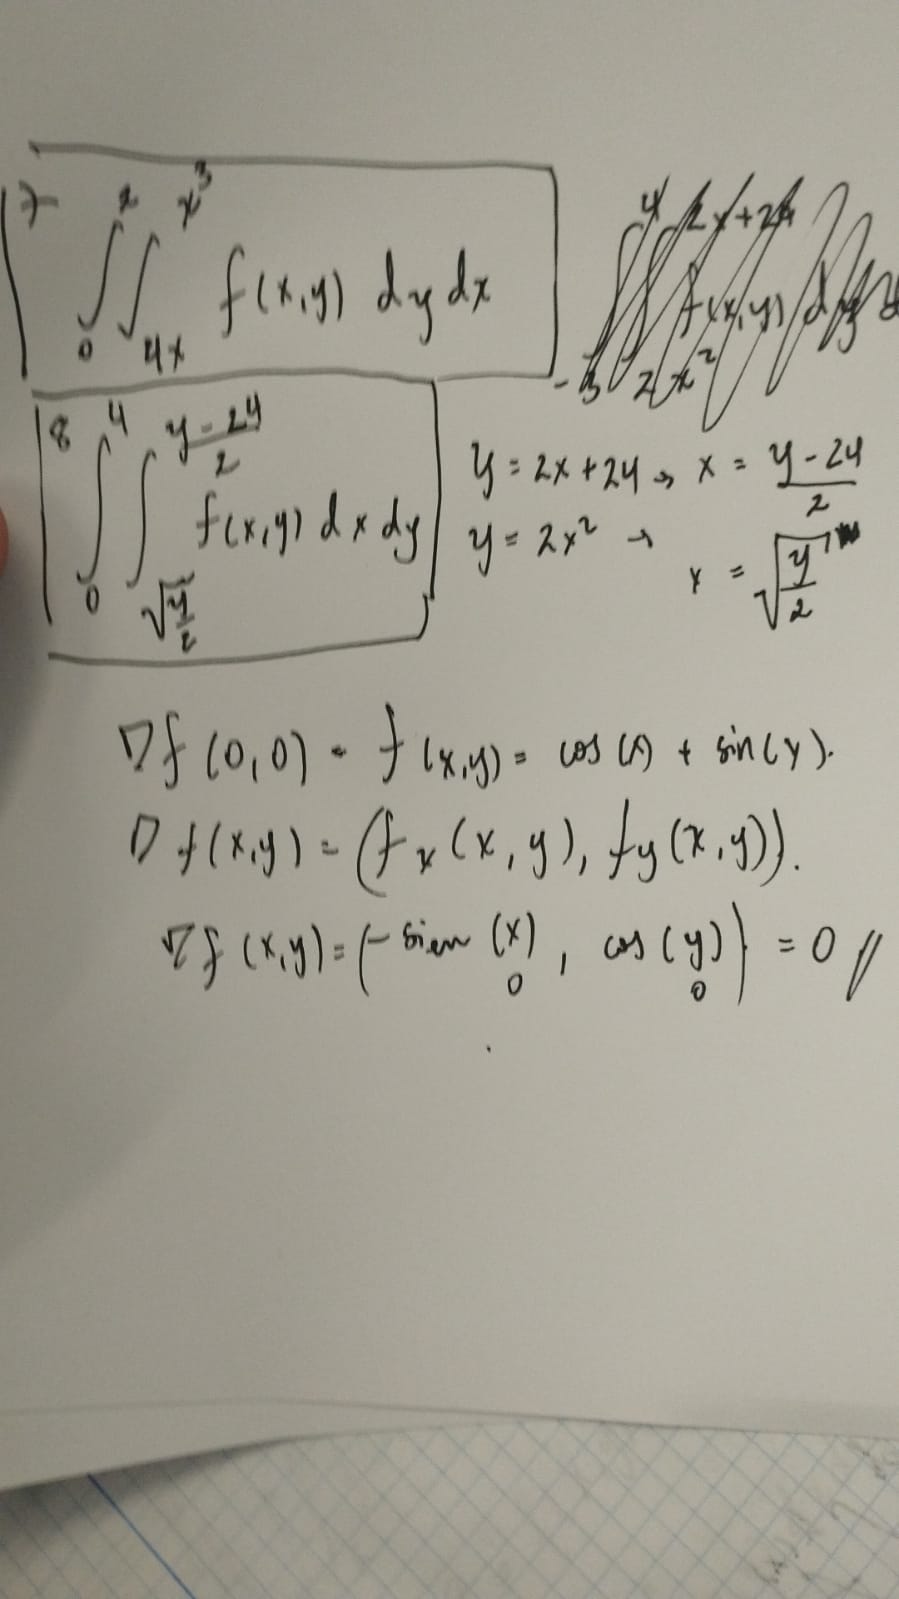 7 ∫₀² ∫₄ₓ^(x³) f(x,y) dy dx
8 ∫₀⁴ ∫_(√(y/2))^((y-24)/2) f(x,y) dx dy
y = 2x+24 → x = (y-24)/2
y = 2x² → x = √(y/2)
∇f(0,0) = f(x,y) = cos(x) + sin(y).
∇f(x,y) = (fx(x,y), fy(x,y)).
∇f(x,y) = (-sien(x) 0, cos(y) 0) = 0 //